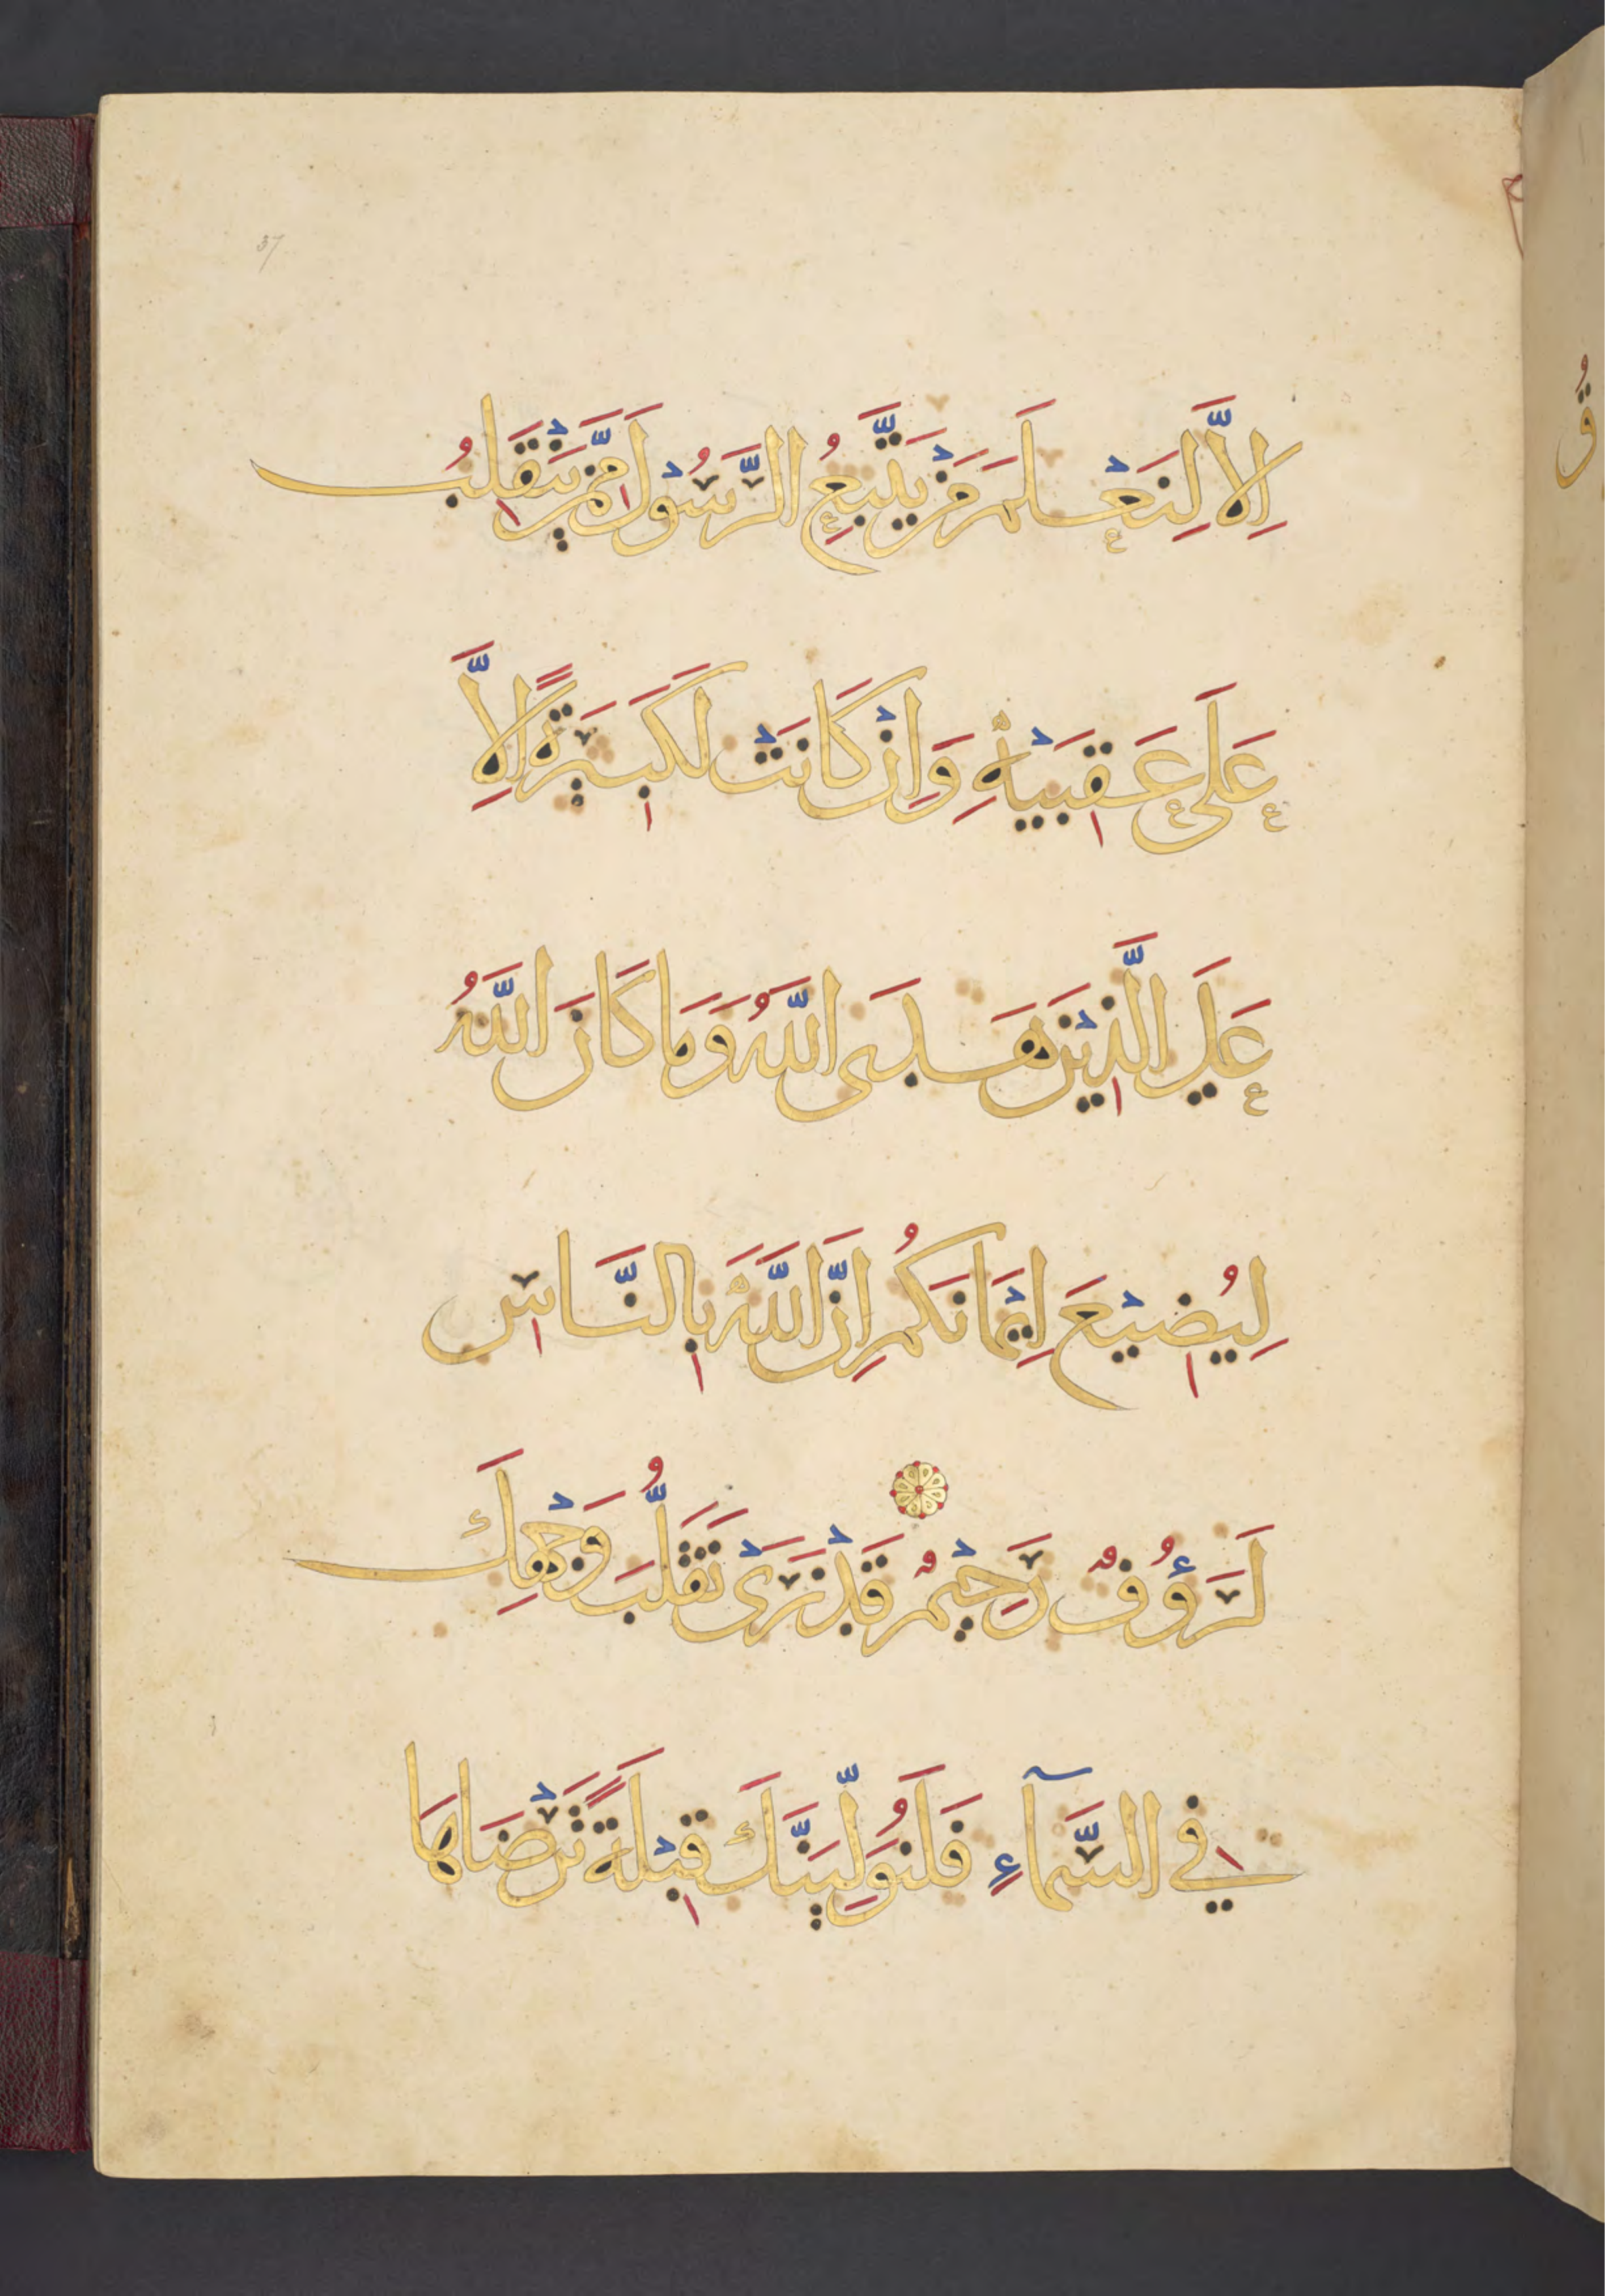 37
اِلاَّ لِنَعْلَمَ مَنْ يَتَّبِعُ الرَّسُوْلَ مِمَّنْ يَنْقَلِبُ
عَلَى عَقِبَيْهِ وَاِنْ كَانَتْ لَكَبِيَرةً اِلاَّ
عَلَي الَّذِيْنَ هَدَى اللَّهُ وَمَا كَانَ اللَّهُ
لِيُضِيْعَ اِيْمَانَكُمْ اِنَّ اللَّهَ بِالنَّاسِ
لَرَؤُفٌ رَحِيْمٌ قَدْ نَرَىْ تَقَلُّبَ وَجْهِكَ
فِي السَّمَآءِ فَلَنُوَلِّيَنَّكَ قِبْلَةً تَرْضَاهَا